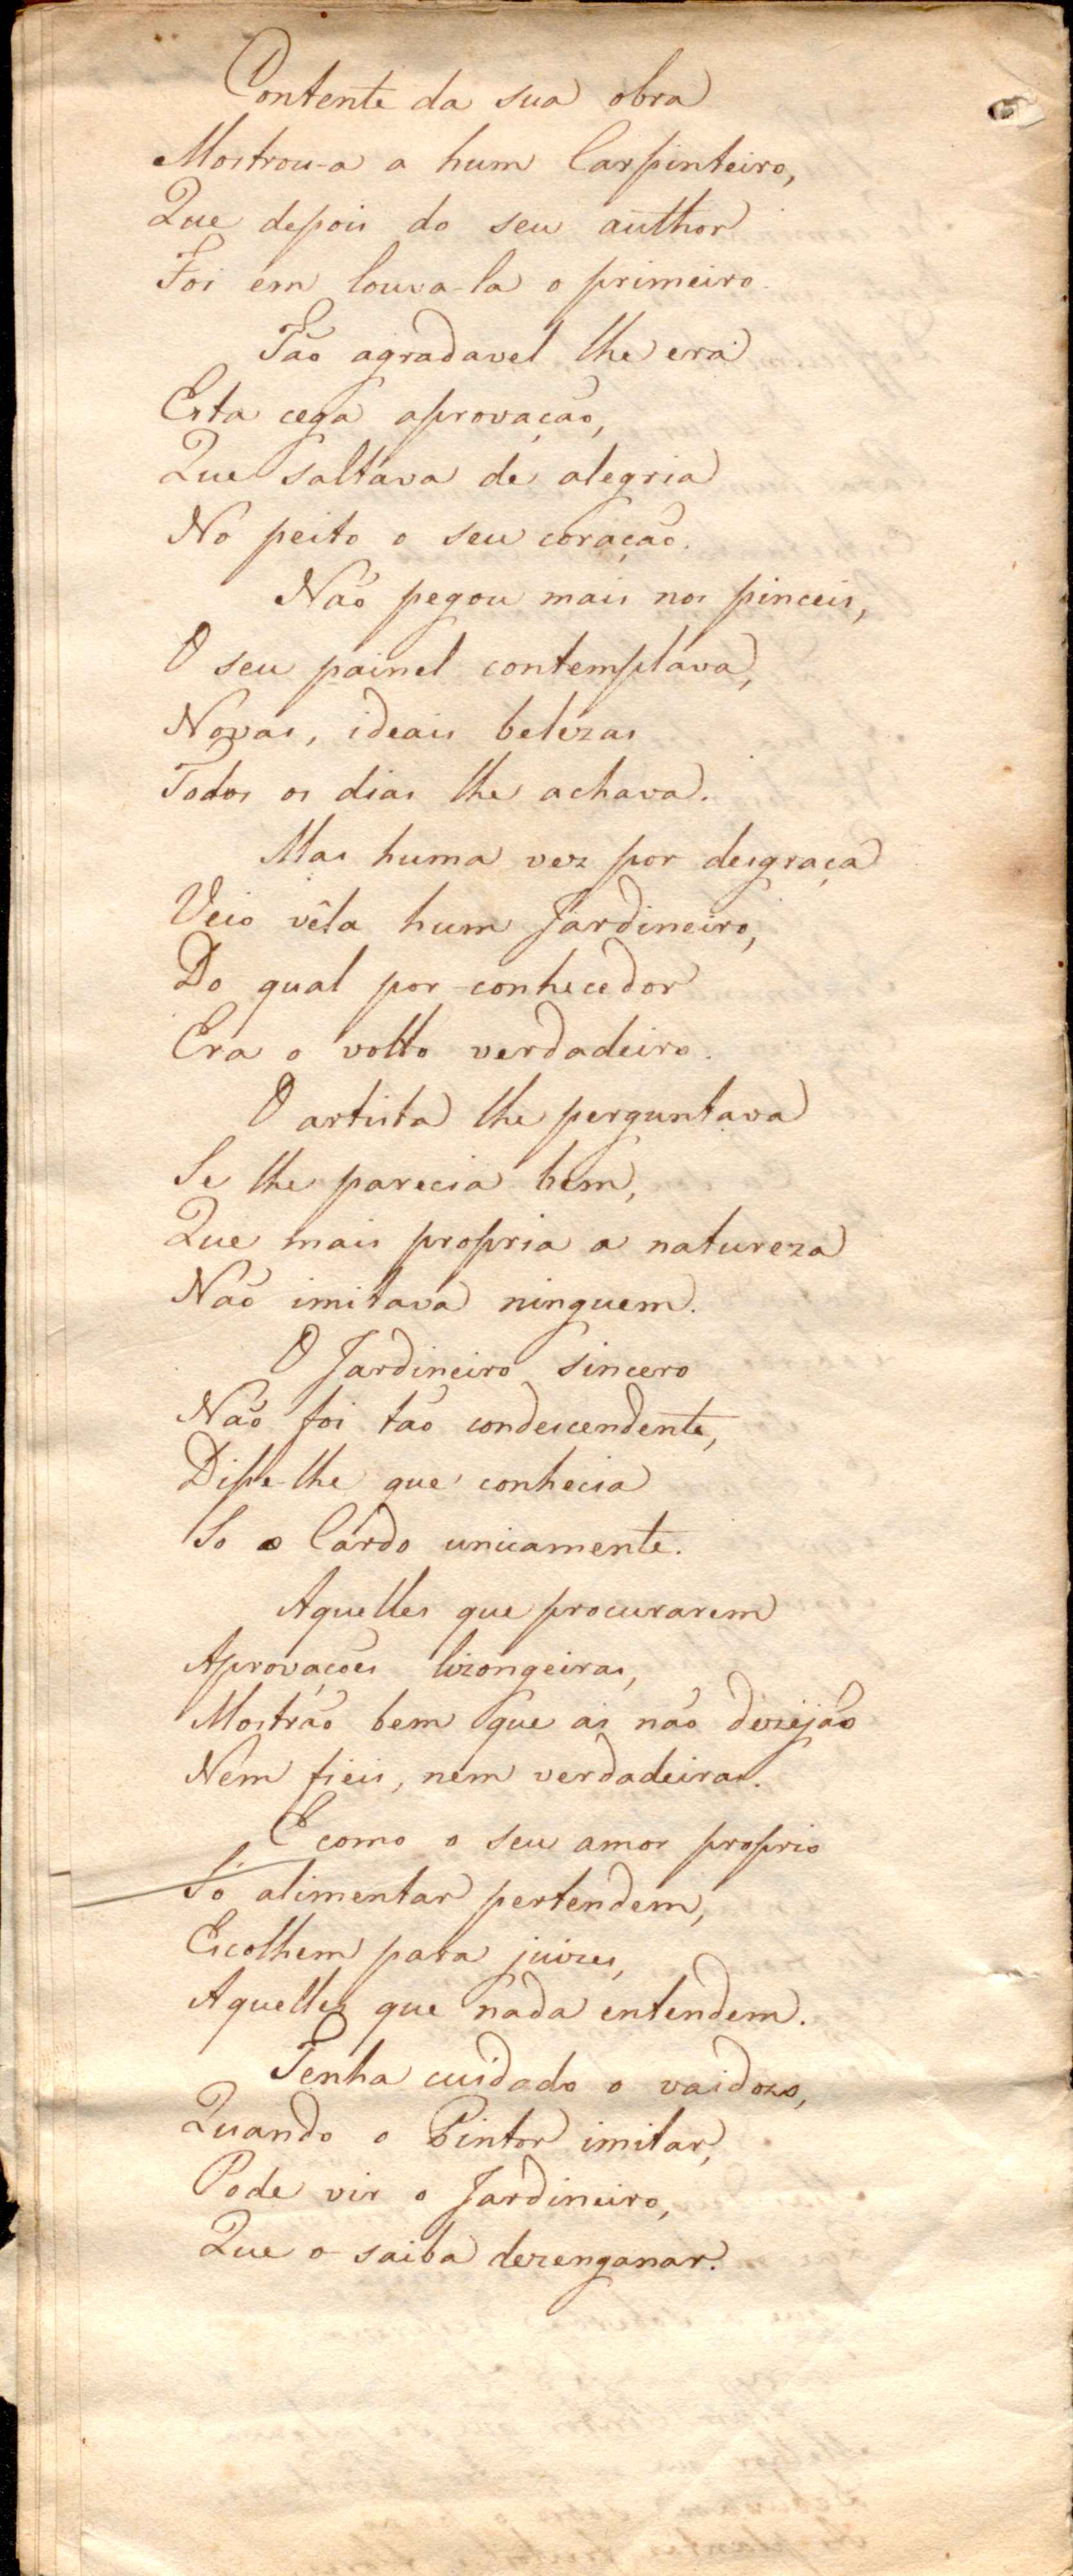 Contente da sua obra
Mostrou-a a hum Carpinteiro,
Que depois do seu author
Foi em louva-la o primeiro.
Tão agradavel lhe era
Esta cega aprovação,
Que saltava de alegria
No peito o seu coração.
Não pegou mais nos pinceis,
O seu painel contemplava,
Novas, ideais belezas
Todos os dias lhe achava.
Mas huma vez por desgraça
Veio vêla hum Jardineiro,
Do qual por conhecedor
Era o volto verdadeiro.
O artista lhe perguntava
Se lhe parecia bem,
Que mais propria a natureza
Não imitava ninguem.
O Jardineiro sincero
Não foi tão condescendente,
Disse-lhe que conhecia
So o Cardo unicamente.
Aquelles que procurarem
Aprovações lizongeiras,
Mostrão bem que as não dezejão
Nem fieis, nem verdadeiras.
E como o seu amor proprio
Só alimentar pertendem,
Escolhem para juizes,
Aquelles que nada entendem.
Tenha cuidado o vaidozo,
Quando o Pintor imitar,
Pode vir o Jardineiro,
Que o saiba dezenganar.